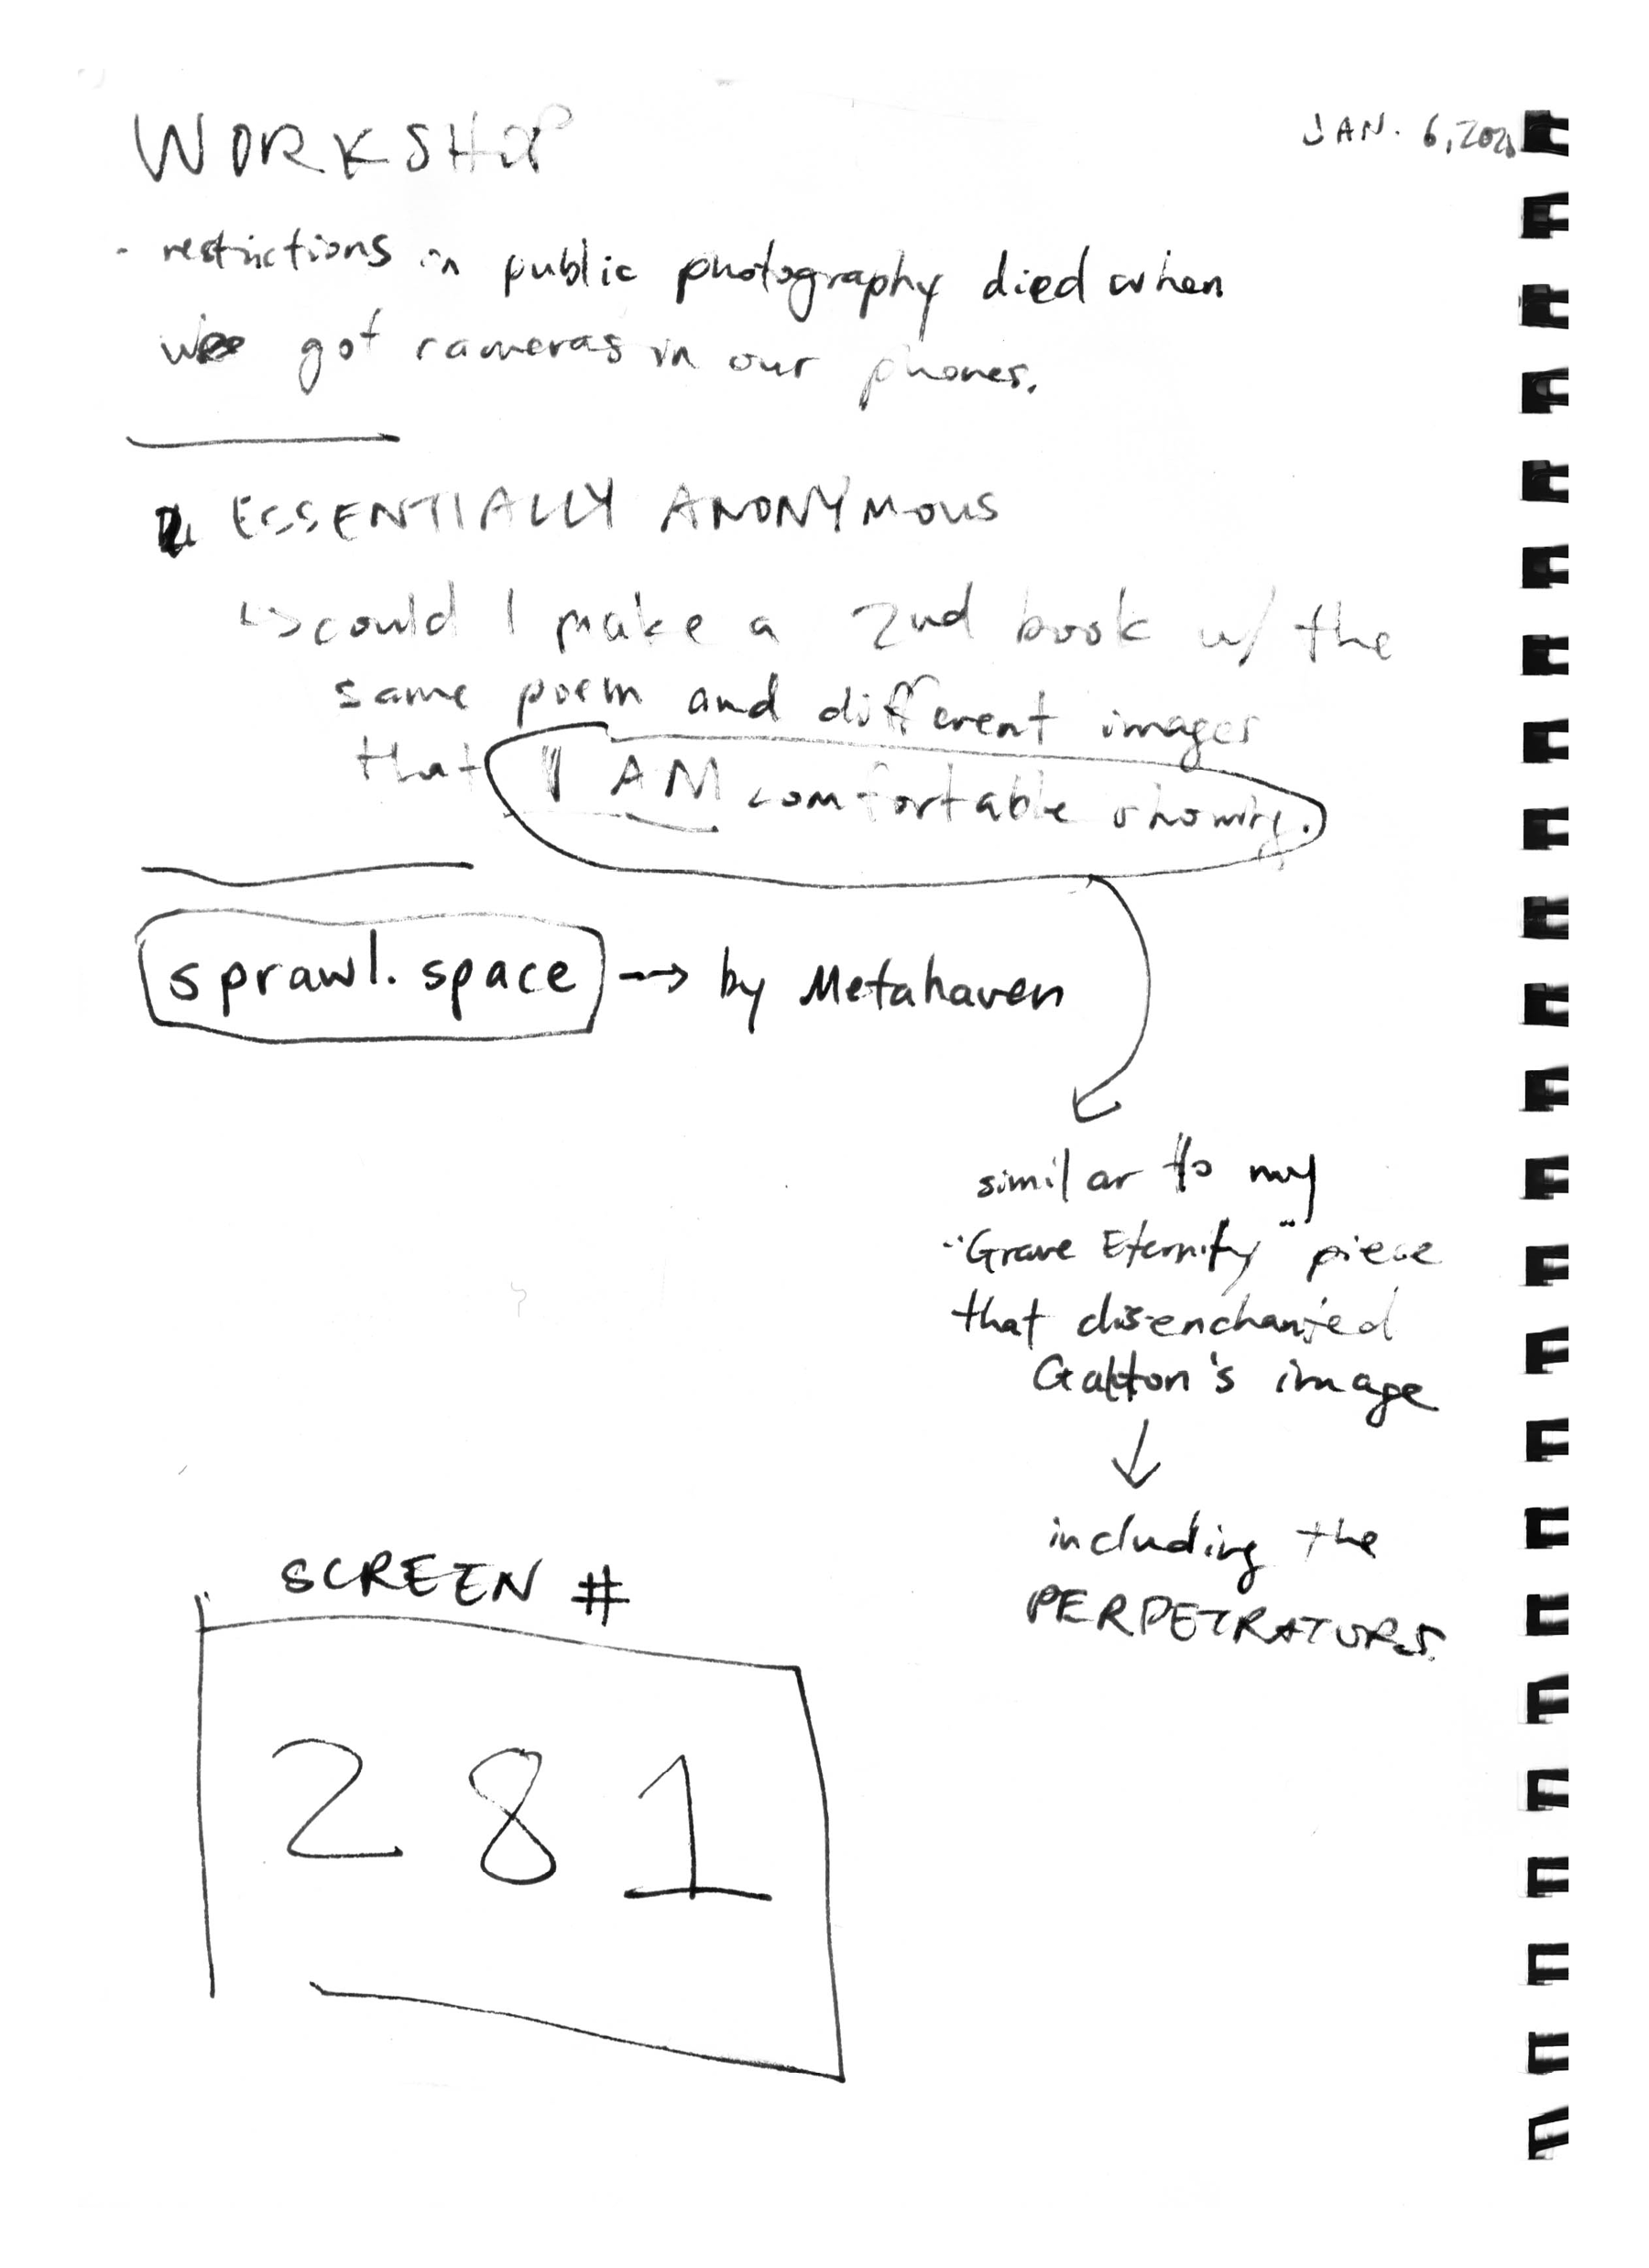 WORKSHOP
JAN. 6, 2020
- restrictions in public photography died when
we got cameras in our phones.
ESSENTIALLY ANONYMOUS
↳ could I make a 2nd book w/ the
same poem and different images
that I AM comfortable showing.
sprawl.space → by Metahaven
similar to my
"Grave Eternity" piece
that disenchanted
Galton's image
↓
including the
PERPETRATORS.
SCREEN #
281